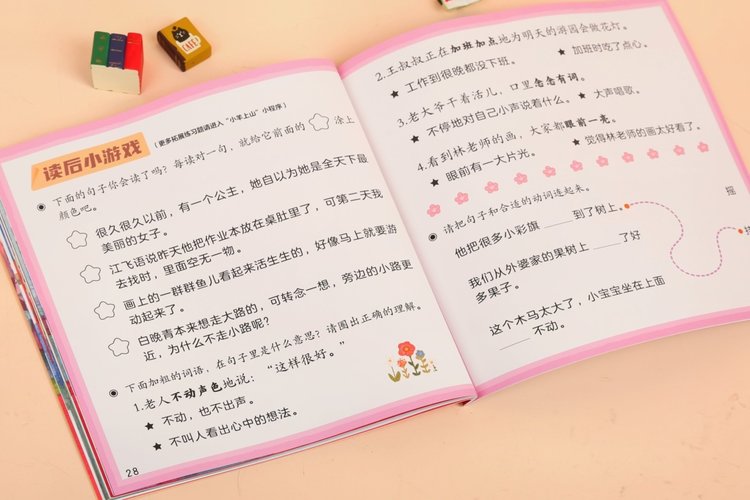 读后小游戏 (更多拓展练习题请进入“小羊上山”小程序)
下面的句子你会读了吗？每读对一句，就给它前面的 涂上
颜色吧。
很久很久以前，有一个公主，她自以为她是全天下最
美丽的女子。
江飞语说昨天他把作业本放在桌肚里了，可第二天我
去找时，里面空无一物。
画上的一群群鱼儿看起来活生生的，好像马上就要游
动起来了。
白晚青本来想走大路的，可转念一想，旁边的小路更
近，为什么不走小路呢？
下面加粗的词语，在句子里是什么意思？请圈出正确的理解。
1.老人不动声色地说：“这样很好。”
★ 不动，也不出声。
★ 不叫人看出心中的想法。
28
2.王叔叔正在加班加点地为明天的游园会做花灯。
★ 工作到很晚都没下班。 ★ 加班时吃了点心。
3.老大爷干着活儿，口里念念有词。
★ 不停地对自己小声说着什么。 ★ 大声唱歌。
4.看到林老师的画，大家都眼前一亮。
★ 眼前有一大片光。 ★ 觉得林老师的画太好看了。
请把句子和合适的动词连起来。
他把很多小彩旗____到了树上。 摇
我们从外婆家的果树上____了好
多果子。
这个木马太大了，小宝宝坐在上面
____不动。
CAFE